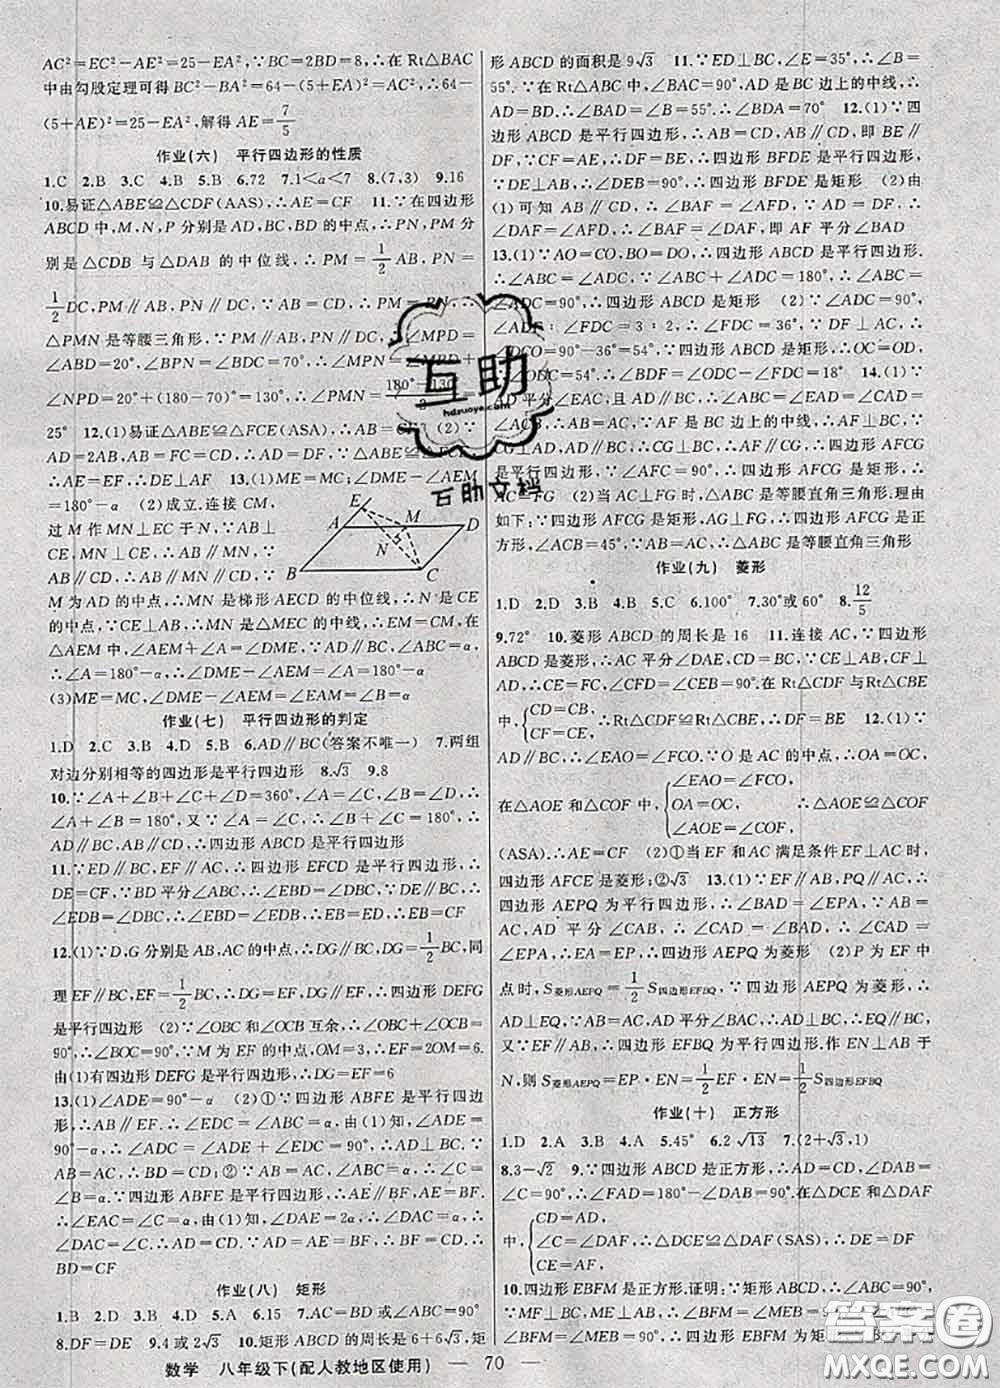 AC²=EC²-AE²=25-EA².∵BC=2BD=8,∴在 Rt△BAC
中由勾股定理可得 BC²-BA²=64-(5+EA)²=AC²,∴64-
(5+AE)²=25-EA²,解得 AE=7/5
作业(六) 平行四边形的性质
1.C 2.B 3.C 4.B 5.B 6.72 7.1<a<7 8.(7,3) 9.16
10.易证△ABE≌△CDF(AAS),∴AE=CF 11.∵在四边形
ABCD 中,M、N、P 分别是 AD、BC、BD 的中点,∴PN、PM 分
别是△CDB 与△DAB 的中位线,∴PM=1/2 AB,PN=
1/2 DC,PM∥AB,PN∥DC,∵AB=CD,∴PM=PN,∴
△PMN 是等腰三角形,∵PM∥AB,PN∥DC,∴∠MPD=
∠ABD=20°,∠BPN=∠BDC=70°,∴∠MPN=∠MPD+
∠NPD=20°+(180-70)°=130°,∴∠PMN=(180°-130°)/2=
25° 12.(1)易证△ABE≌△FCE(ASA),∴AB=CF (2)∵
AD=2AB,AB=FC=CD,∴AD=DF,∵△ABE≌△FCE,
∴AE=EF,∴DE⊥AF 13.(1)ME=MC;∠DME-∠AEM
=180°-α (2)成立.连接 CM,
过 M 作 MN⊥EC 于 N,∵AB⊥
CE,MN⊥CE,∴AB∥MN,∵
AB∥CD,∴AB∥MN∥CD,∵
M 为 AD 的中点,∴MN 是梯形 AECD 的中位线,∴N 是 CE
的中点,∵MN⊥CE,∴MN 是△MEC 的中线,∴EM=CM,在
△AEM 中,∠A=∠DME-∠AEM,∵∠A=180°-∠B,∠B=
α,∴∠A=180°-α,∴∠DME-∠AEM=∠A=180°-α
(3)ME=MC,∠DME-∠AEM=∠EAM=180°-α
作业(七) 平行四边形的判定
1.D 2.C 3.B 4.D 5.B 6.AD∥BC(答案不唯一) 7.两组
对边分别相等的四边形是平行四边形 8.√3 9.8
10.∵∠A+∠B+∠C+∠D=360°,∠A=∠C,∠B=∠D,∴
∠A+∠B=180°,又∵∠A=∠C,∴∠B+∠C=180°,∴
AD∥BC,AB∥CD,∴四边形 ABCD 是平行四边形
11.∵ED∥BC,EF∥AC,∴四边形 EFCD 是平行四边形,∴
DE=CF,∵BD 平分∠ABC,∴∠EBD=∠DBC,∵DE∥BC,
∴∠EDB=∠DBC,∴∠EBD=∠EDB,∴EB=ED,∴EB=CF
12.(1)∵D、G 分别是 AB、AC 的中点,∴DG∥BC,DG=1/2 BC,同
理 EF∥BC,EF=1/2 BC,∴DG=EF,DG∥EF,∴四边形 DEFG
是平行四边形 (2)∵∠OBC 和∠OCB 互余,∴∠OBC+∠OCB=
90°,∴∠BOC=90°,∵M 为 EF 的中点,OM=3,∴EF=2OM=6.
由(1)有四边形 DEFG 是平行四边形,∴DG=EF=6
13.(1)∠ADE=90°-α (2)①∵四边形 ABFE 是平行四边
形,∴AB∥EF,∴∠EFC=∠ABC=α,由(1)知,∠ADE=
90°-α,∴∠ADC=∠ADE+∠EDC=90°,∴AD⊥BC,∵
AB=AC,∴BD=CD;②∵AB=AC,∠ABC=α,∴∠C=
∠B=α.∵四边形 ABFE 是平行四边形,∴AE∥BF,AE=BF,∴
∠EAC=∠C=α,由(1)知,∠DAE=2α,∴∠DAC=α,∴
∠DAC=∠C,∴AD=CD,∵AD=AE=BF,∴BF=CD,∴
BD=CF
作业(八) 矩形
1.B 2.D 3.C 4.D 5.A 6.15 7.AC=BD或∠ABC=90°
8.DF=DE 9.4或2√3 10.矩形 ABCD 的周长是6+6√3,矩
数学 八年级下(配人教地区使用) — 70 —
形 ABCD 的面积是 9√3 11.∵ED⊥BC,∠E=35°,∴∠B=
55°.在 Rt△ABC 中,∠BAC=90°,AD 是 BC 边上的中线,∴
AD=BD=DC,∴∠B=∠BAD=55°,∴∠BDA=70° 12.(1)∵四
边形 ABCD 是平行四边形,∴AB∥CD,即 BE∥
DF,∵CF=AE,∴DF=BE,∴四边形 BFDE 是平行四边形,
∵DE⊥AB,∴∠DEB=90°,∴四边形 BFDE 是矩形 (2)由
(1)可知 AB∥CD,∴∠BAF=∠AFD,∵AD=DF,∴
∠DAF=∠AFD,∴∠BAF=∠DAF,即 AF 平分∠BAD
13.(1)∵AO=CO,BO=DO,∴四边形 ABCD 是平行四边形,
∴∠ABC=∠ADC,∵∠ABC+∠ADC=180°,∴∠ABC=
∠ADC=90°,∴四边形 ABCD 是矩形 (2)∵∠ADC=90°,
∠ADF:∠FDC=3:2,∴∠FDC=36°,∵DF⊥AC,∴
∠DCO=90°-36°=54°,∵四边形 ABCD 是矩形,∴OC=OD,
∴∠ODC=54°,∴∠BDF=∠ODC-∠FDC=18° 14.(1)∵
AD 平分∠EAC,且 AD∥BC,∴∠ABC=∠EAD=∠CAD=
∠ACB,∴AB=AC,AF 是 BC 边上的中线,∴AF⊥BC,
∵CG⊥AD,AD∥BC,∴CG⊥BC,∴AF∥CG,∴四边形 AFCG 是
平行四边形,∵∠AFC=90°,∴四边形 AFCG 是矩形,∴
AC=FG (2)当 AC⊥FG 时,△ABC 是等腰直角三角形.理由
如下:∵四边形 AFCG 是矩形,AC⊥FG,∴四边形 AFCG 是正
方形,∠ACB=45°,∵AB=AC,∴△ABC 是等腰直角三角形
作业(九) 菱形
1.D 2.D 3.B 4.B 5.C 6.100° 7.30°或 60° 8.12/5
9.72° 10.菱形 ABCD 的周长是 16 11.连接 AC,∵四边形
ABCD 是菱形,∴AC 平分∠DAE,CD=BC,∵CE⊥AB,CF⊥AD,
∴CE=FC,∠CFD=∠CEB=90°.在 Rt△CDF 与 Rt△CBE
中,{CD=CB, CF=CE, ∴Rt△CDF≌Rt△CBE,∴DF=BE 12.(1)∵
AE∥CF,∴∠EAO=∠FCO,∵O 是 AC 的中点,∴OA=OC.
在△AOE 和△COF 中,{∠EAO=∠FCO, OA=OC, ∠AOE=∠COF, ∴△AOE≌△COF
(ASA).∴OE=OF (2)①当 EF 和 AC 满足条件EF⊥AC 时,
四边形 AFCE 是菱形;②√3 13.(1)∵EF∥AB,PQ∥AC,∴
四边形 AEPQ 为平行四边形,∴∠BAD=∠EPA,∵AB=
AC,AD 平分∠CAB,∴∠CAD=∠BAD,∴∠CAD=
∠EPA,∴EA=EP,∴四边形 AEPQ 为菱形 (2)P 为 EF 中
点时,S菱形AEPQ=1/2 S四边形EFBQ,∵四边形 AEPQ 为菱形,∴
AD⊥EQ,∵AB=AC,AD 平分∠BAC,∴AD⊥BC,∴EQ∥BC,
又∵EF∥AB,∴四边形 EFBQ 为平行四边形.作 EN⊥AB 于
N,则S菱形AEPQ=EP·EN=1/2 EF·EN=1/2 S四边形EFBQ
作业(十) 正方形
1.D 2.A 3.B 4.A 5.45° 6.2√13 7.(2+√3,1)
8.3-√2 9.∵四边形 ABCD 是正方形,∴∠DAB=∠C=
90°,∴∠FAD=180°-∠DAB=90°.在△DCE 和△DAF
中,{CD=AD, ∠C=∠DAF, CE=AF, ∴△DCE≌△DAF(SAS),∴DE=DF
10.四边形 EBFM 是正方形.证明:∵矩形 ABCD,∴∠ABC=90°,
∵MF⊥BC,ME⊥AB,∴∠BFM=90°,∠BEM=90°,∴∠ABC=
∠BFM=∠BEM=90°,∴四边形 EBFM 为矩形,∵矩形 ABCD,
互助
hdzuoye.com
互助文档
答案圈
MXQE.COM